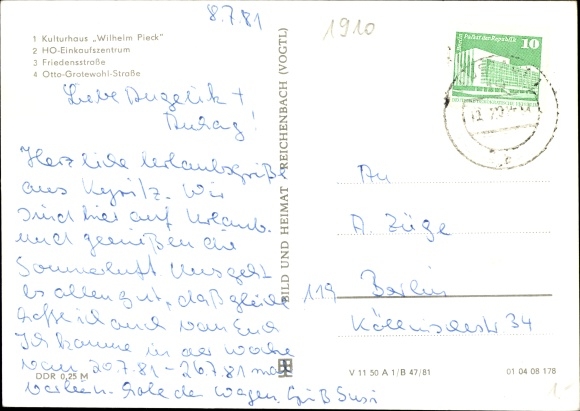 8.7.81
1910
1 Kulturhaus „Wilhelm Pieck"
2 HO-Einkaufszentrum
3 Friedensstraße
4 Otto-Grotewohl-Straße
Berlin Palast der Republik 10
Liebe Angelik +
Herzliche Urlaubsgrüße
aus Kyritz. Wir
sind hier auf Urlaub
und genießen die
Sommerluft. Uns geht
es allen gut, daß gleiche
hoffe ich auch von Euch
Ich komme in der Woche
vom 20.7.81 - 26.7.81 mal
vorbei. Hole den Wagen. Gruß Susi
BILD UND HEIMAT REICHENBACH (VOGTL)
An
A. Züge
119 Berlin
Köllnischestr 34
DDR 0,25 M
V 11 50 A 1/B 47/81
01 04 08 178
1.-